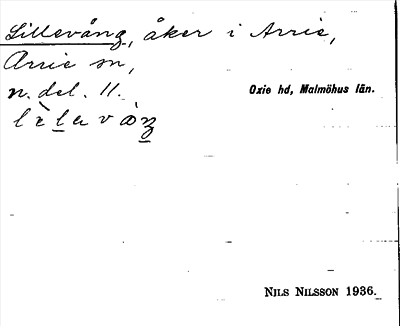 Lillevång, åker i Arrie,
Arrie sn,
n. del. 11.
Oxie hd, Malmöhus län.
NILS NILSSON 1936.